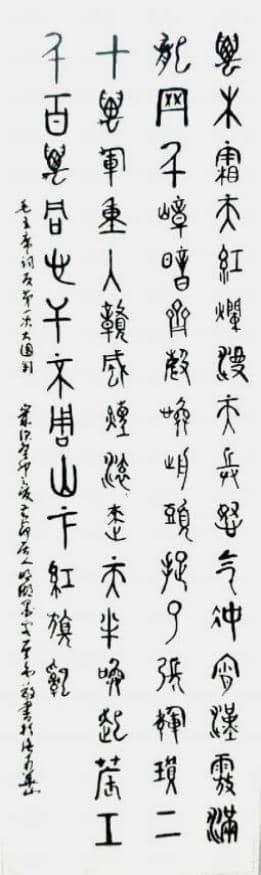 萬木霜天紅爛漫天兵怒气沖霄漢霧滿
龍岡千嶂暗齊聲喚前頭捉了張輝瓚二
十萬軍重入贛風煙滾來天半喚起農工
千百萬同心干不周山下紅旗亂
毛主席詞反第一次大圍剿
歲次癸卯之夏